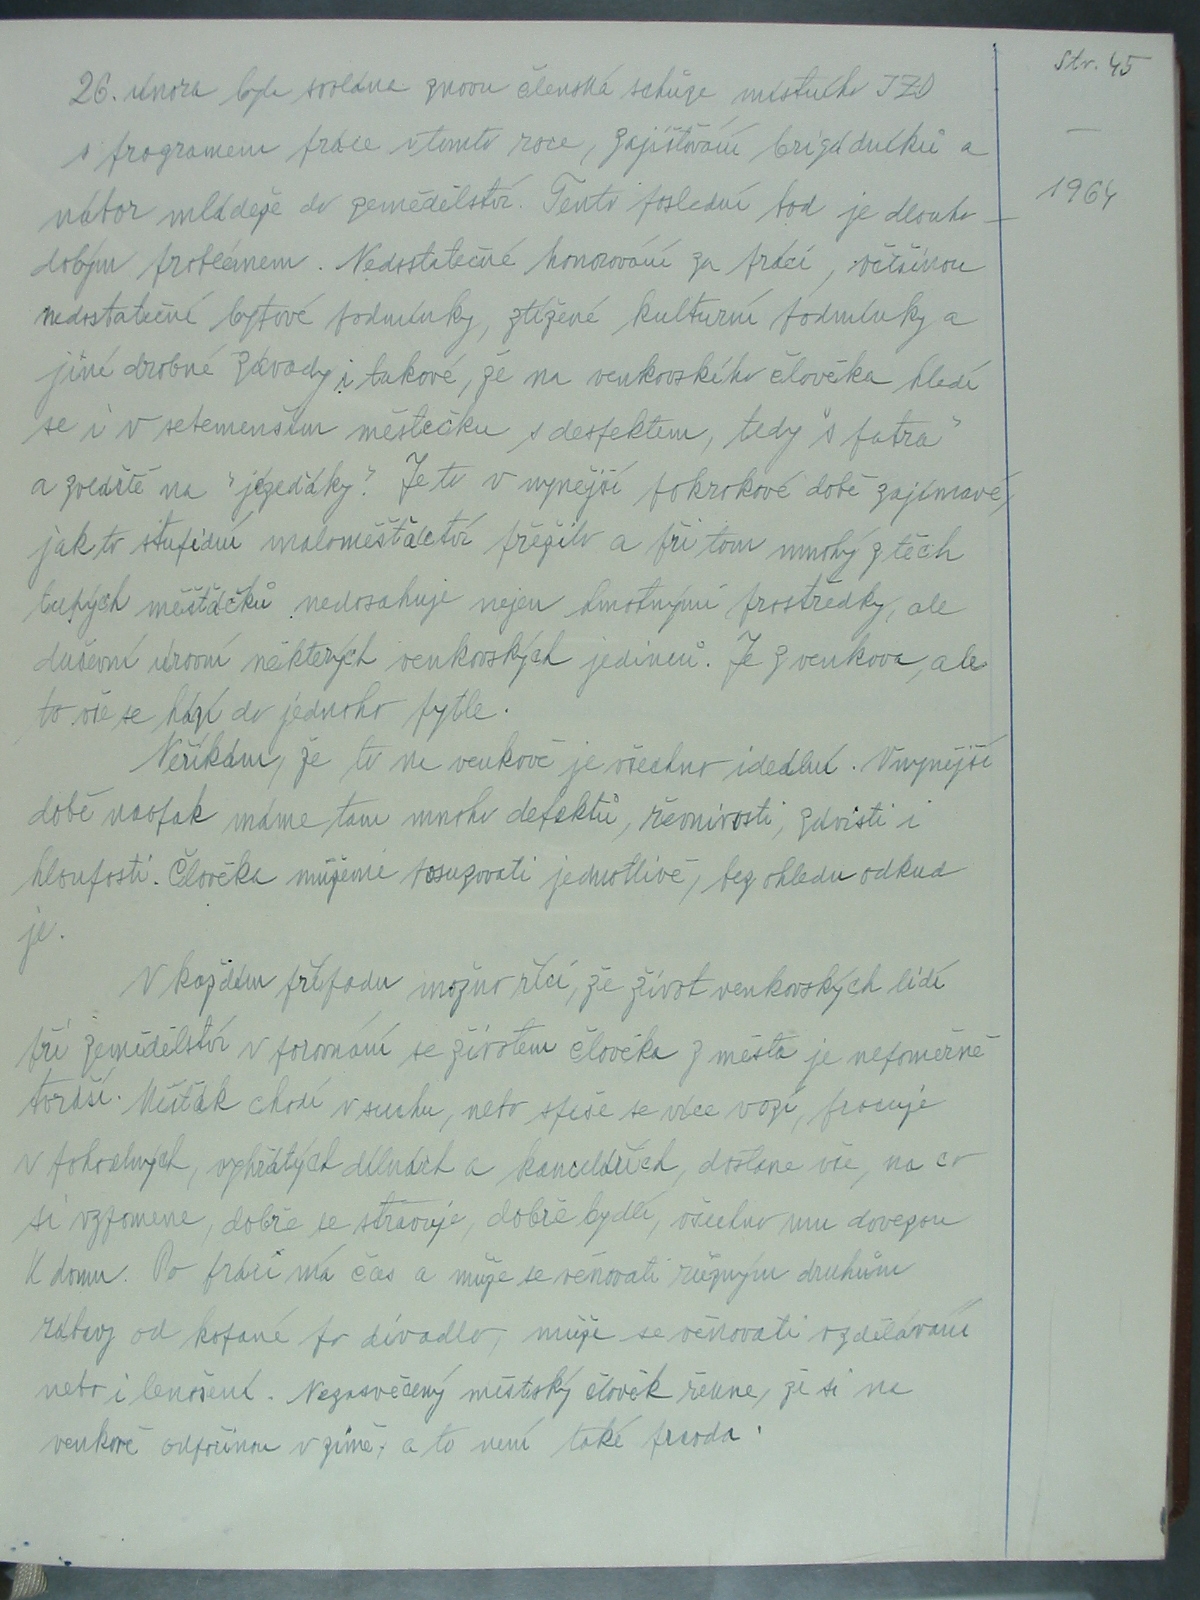 Str. 45
1964
26. února byla svolána znovu členská schůze místního JZD
s programem práce v tomto roce, zajišťování brigádníků a
nábor mládeže do zemědělství. Tento poslední bod je dlouho-
dobým problémem. Nedostatečné honorování za práci, většinou
nedostatečné bytové podmínky, ztížené kulturní podmínky a
jiné drobné závady i takové, že na venkovského člověka hledí
se i v sebemenším městečku s desfektem, tedy "s patra"
a zvláště na "jézeďáky". Je to v nynější pokrokové době zajímavé,
jak to stupidní maloměšťáctví přežilo a při tom mnohý z těch
tupých měšťáčků nedosahuje nejen hmotnými prostředky, ale
duševní úrovní některých venkovských jedinců. Je z venkova, ale
to vše se hází do jednoho pytle.
Neříkám, že to na venkově je všechno ideální. V nynější
době naopak máme tam mnoho defektů, řevnivosti, závisti i
hlouposti. Člověka můžeme posuzovati jednotlivě, bez ohledu odkud
je.
V každém případu možno říci, že život venkovských lidí
při zemědělství v porovnání se životem člověka z města je nepoměrně
tvrdší. Měšťák chodí v suchu, nebo spíše se více vozí, pracuje
v pohodlných, vyhřátých dílnách a kancelářích, dostane vše, na co
si vzpomene, dobře se stravuje, dobře bydlí, všechno mu dovezou
k domu. Po práci má čas a může se věnovati různým druhům
zábavy od kopané po divadlo, může se věnovati vzdělávání
nebo i lenošení. Nezasvěcený městský člověk řekne, že si na
venkově odpočinou v zimě, a to není také pravda.